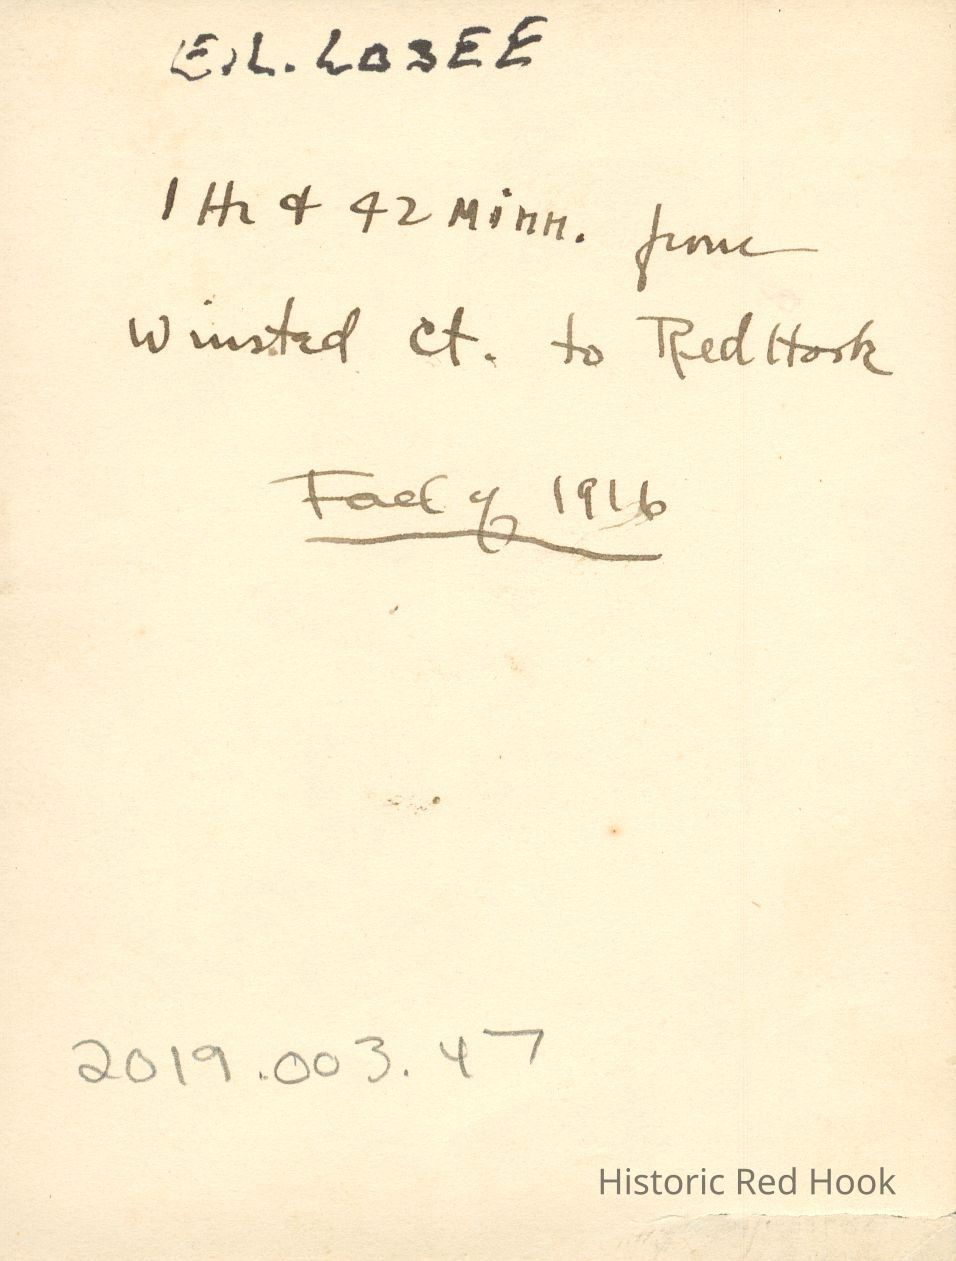 E.L. LOSEE
1 Hr & 42 Minn. from
Winsted Ct. to Red Hook
1916
2019.003.47
Historic Red Hook